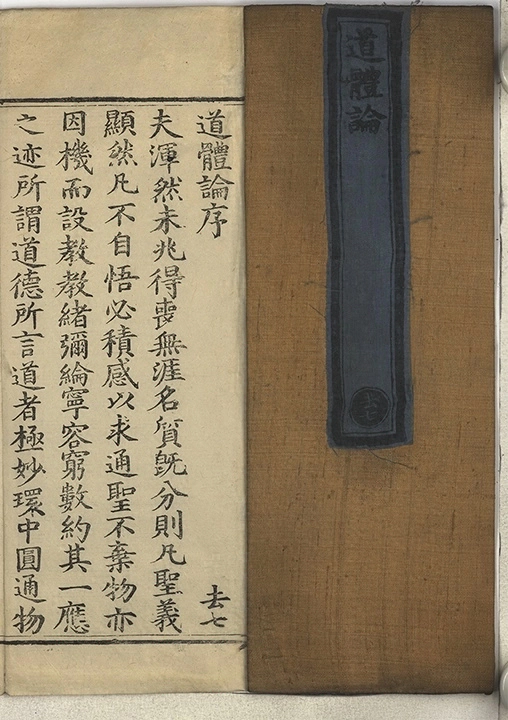 道體論
去七
道體論序
去七
夫渾然未兆得喪無涯名質既分則凡聖義
顯然凡不自悟必積感以求通聖不棄物亦
因機而設教教緒彌綸寧容窮數約其一應
之迹所謂道德所言道者極妙環中圓通物